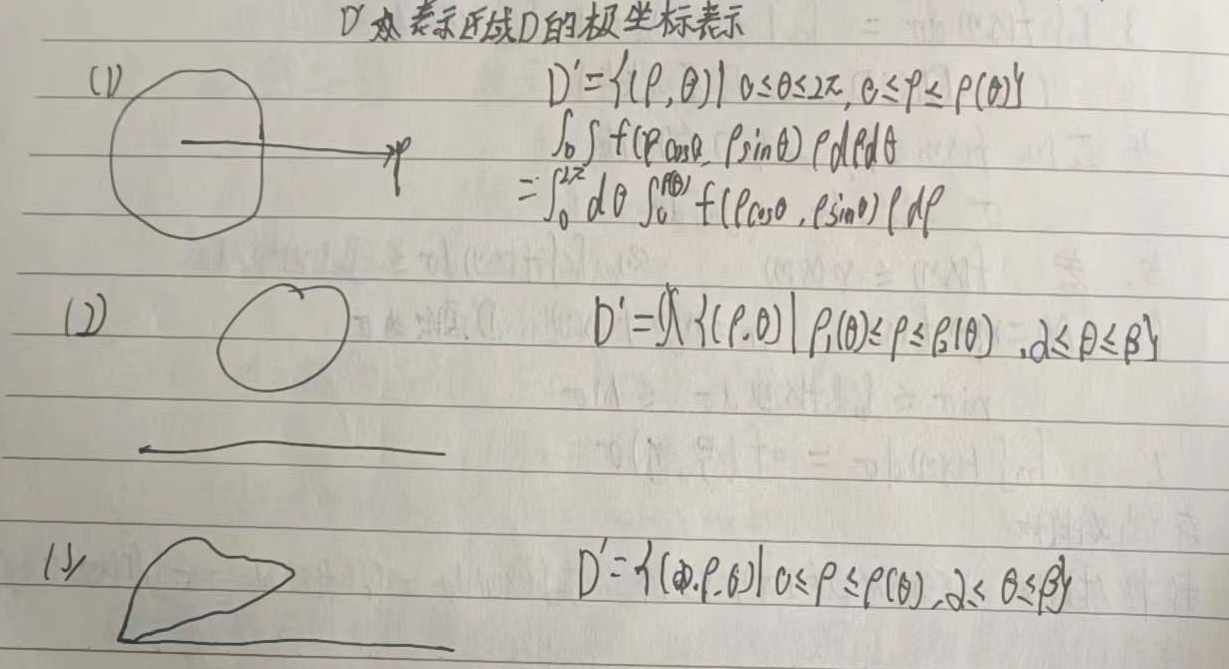 D' 表示区域D的极坐标表示
(1) D'={(ρ,θ)| 0≤θ≤2π, 0≤ρ≤ρ(θ)}
∫∫ f(ρcosθ, ρsinθ) ρdρdθ
=∫₀^{2π} dθ ∫₀^{ρ(θ)} f(ρcosθ, ρsinθ) ρ dρ
ρ
(2) D'={(ρ,θ)| ρ₁(θ)≤ρ≤ρ₂(θ), α≤θ≤β}
(3) D'={(ρ,θ)| 0≤ρ≤ρ(θ), α≤θ≤β}